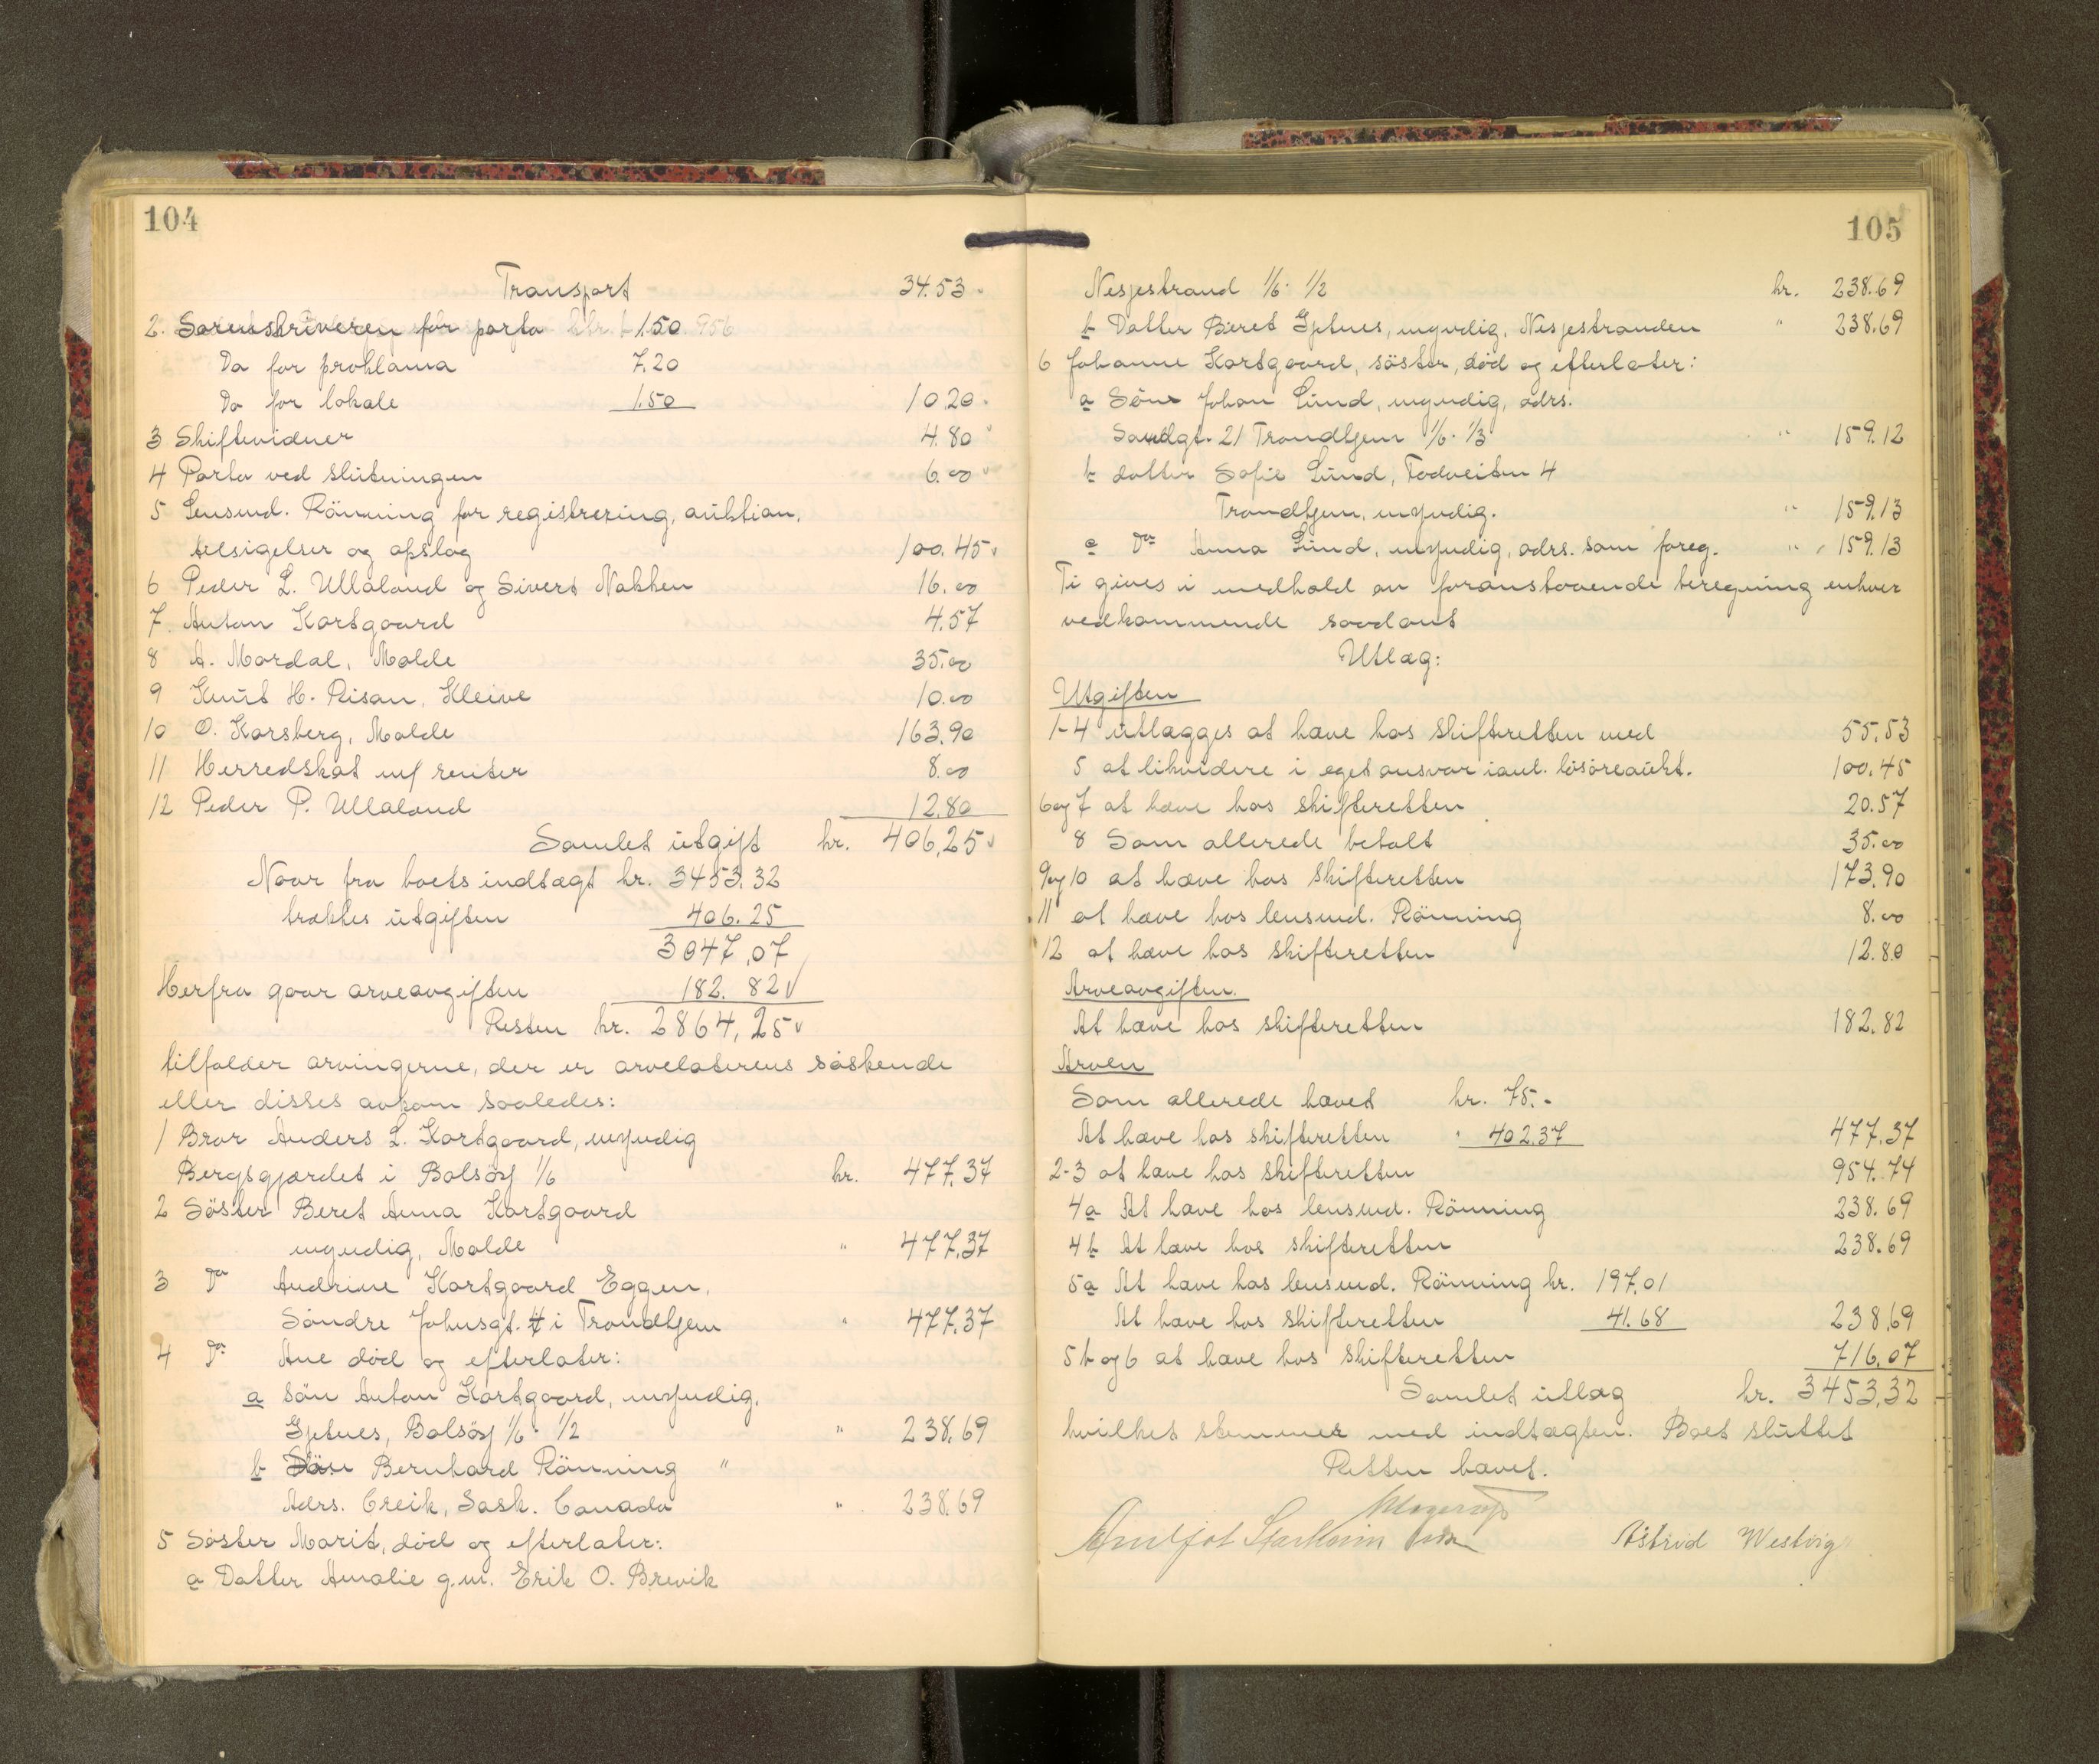 104
Transport 34.53
2. Sorenskriveren for porto 1.50
Do for proklama 7.20
Do for lokale 1.50 10.20
3 Skiftevidner 4.80
4 Porto ved slutningen 6.00
5 Lensmd. Rönning for registrering, auktion,
tilsigelser og opslag 100.45
6 Peder L. Ullaland og Sivert Nakken 16.00
7. Anton Kortgaard 4.57
8 A. Mordal, Molde 35.00
9 Knut H. Risan, Kleive 10.00
10 O. Korsberg, Molde 163.90
11 Herredskat m/ renter 8.00
12 Peder P. Ullaland 12.80
Samlet utgift kr. 406,25
Naar fra boets indtægt kr. 3453.32
trækkes utgiften 406.25
3047,07
Herfra gaar arveavgiften 182.82
Resten kr. 2864,25
tilfalder arvingerne, der er arvelaterens söskende
eller disses avkom saaledes:
1 Bror Anders L. Kortgaard, myndig
Bergsgjærdet i Bolsöy 1/6 kr. 477.37
2 Söster Beret Anna Kortgaard
myndig, Molde " 477.37
3 Do Andrine Kortgaard Eggen,
Söndre Johnsgt. 4 i Trondhjem " 477.37
4 Do Ane död og efterlater:
a Sön Anton Kortgaard, myndig,
Gjtnes, Bolsöy 1/6 · 1/2 " 238.69
b Sön Bernhard Rönning "
Adrs. Creik, Sask. Canada " 238.69
5 Söster Marit, död og efterlater:
a Datter Amalie g.m. Erik O. Brevik
105
Nesjestrand 1/6 · 1/2 kr. 238.69
b Datter Beret Gjtnes, myndig, Nesjestranden " 238.69
6 Johanne Kortgaard, söster, död og efterlater:
a Sön Johan Lund, myndig, adrs.
Sandgt. 21 Trondhjem 1/6 · 1/3 " 159.12
b datter Sofie Lund, Todveiten 4
Trondhjem, myndig. " 159.13
c Do Anna Lund, myndig, adrs. som foreg. " 159.13
Ti gives i medhold av foranstaaende beregning enhver
vedkommende saadant
Utlæg:
Utgiften
1-4 utlægges at hæve hos skifteretten med 55.53
5 at likvidere i eget ansvar ianl. lösöreaukt. 100.45
6 og 7 at hæve hos skifteretten 20.57
8 Som allerede betalt 35.00
9 og 10 at hæve hos skifteretten 173.90
11 at hæve hos lensmd. Rönning 8.00
12 at hæve hos skifteretten 12.80
Arveavgiften.
At hæve hos skifteretten 182.82
Arven
Som allerede hævet kr. 75.-
At hæve hos skifteretten " 402.37 477.37
2-3 at hæve hos skifteretten 954.74
4a At hæve hos lensmd. Rönning 238.69
4b At hæve hos skifteretten 238.69
5a At hæve hos lensmd. Rönning kr. 197.01
At hæve hos skifteretten 41.68 238.69
5b og 6 at hæve hos skifteretten 716.07
Samlet utlæg kr. 3453,32
hvilket stemmer med indtægten. Boet sluttet
Retten hævet.
Astrid Westvig